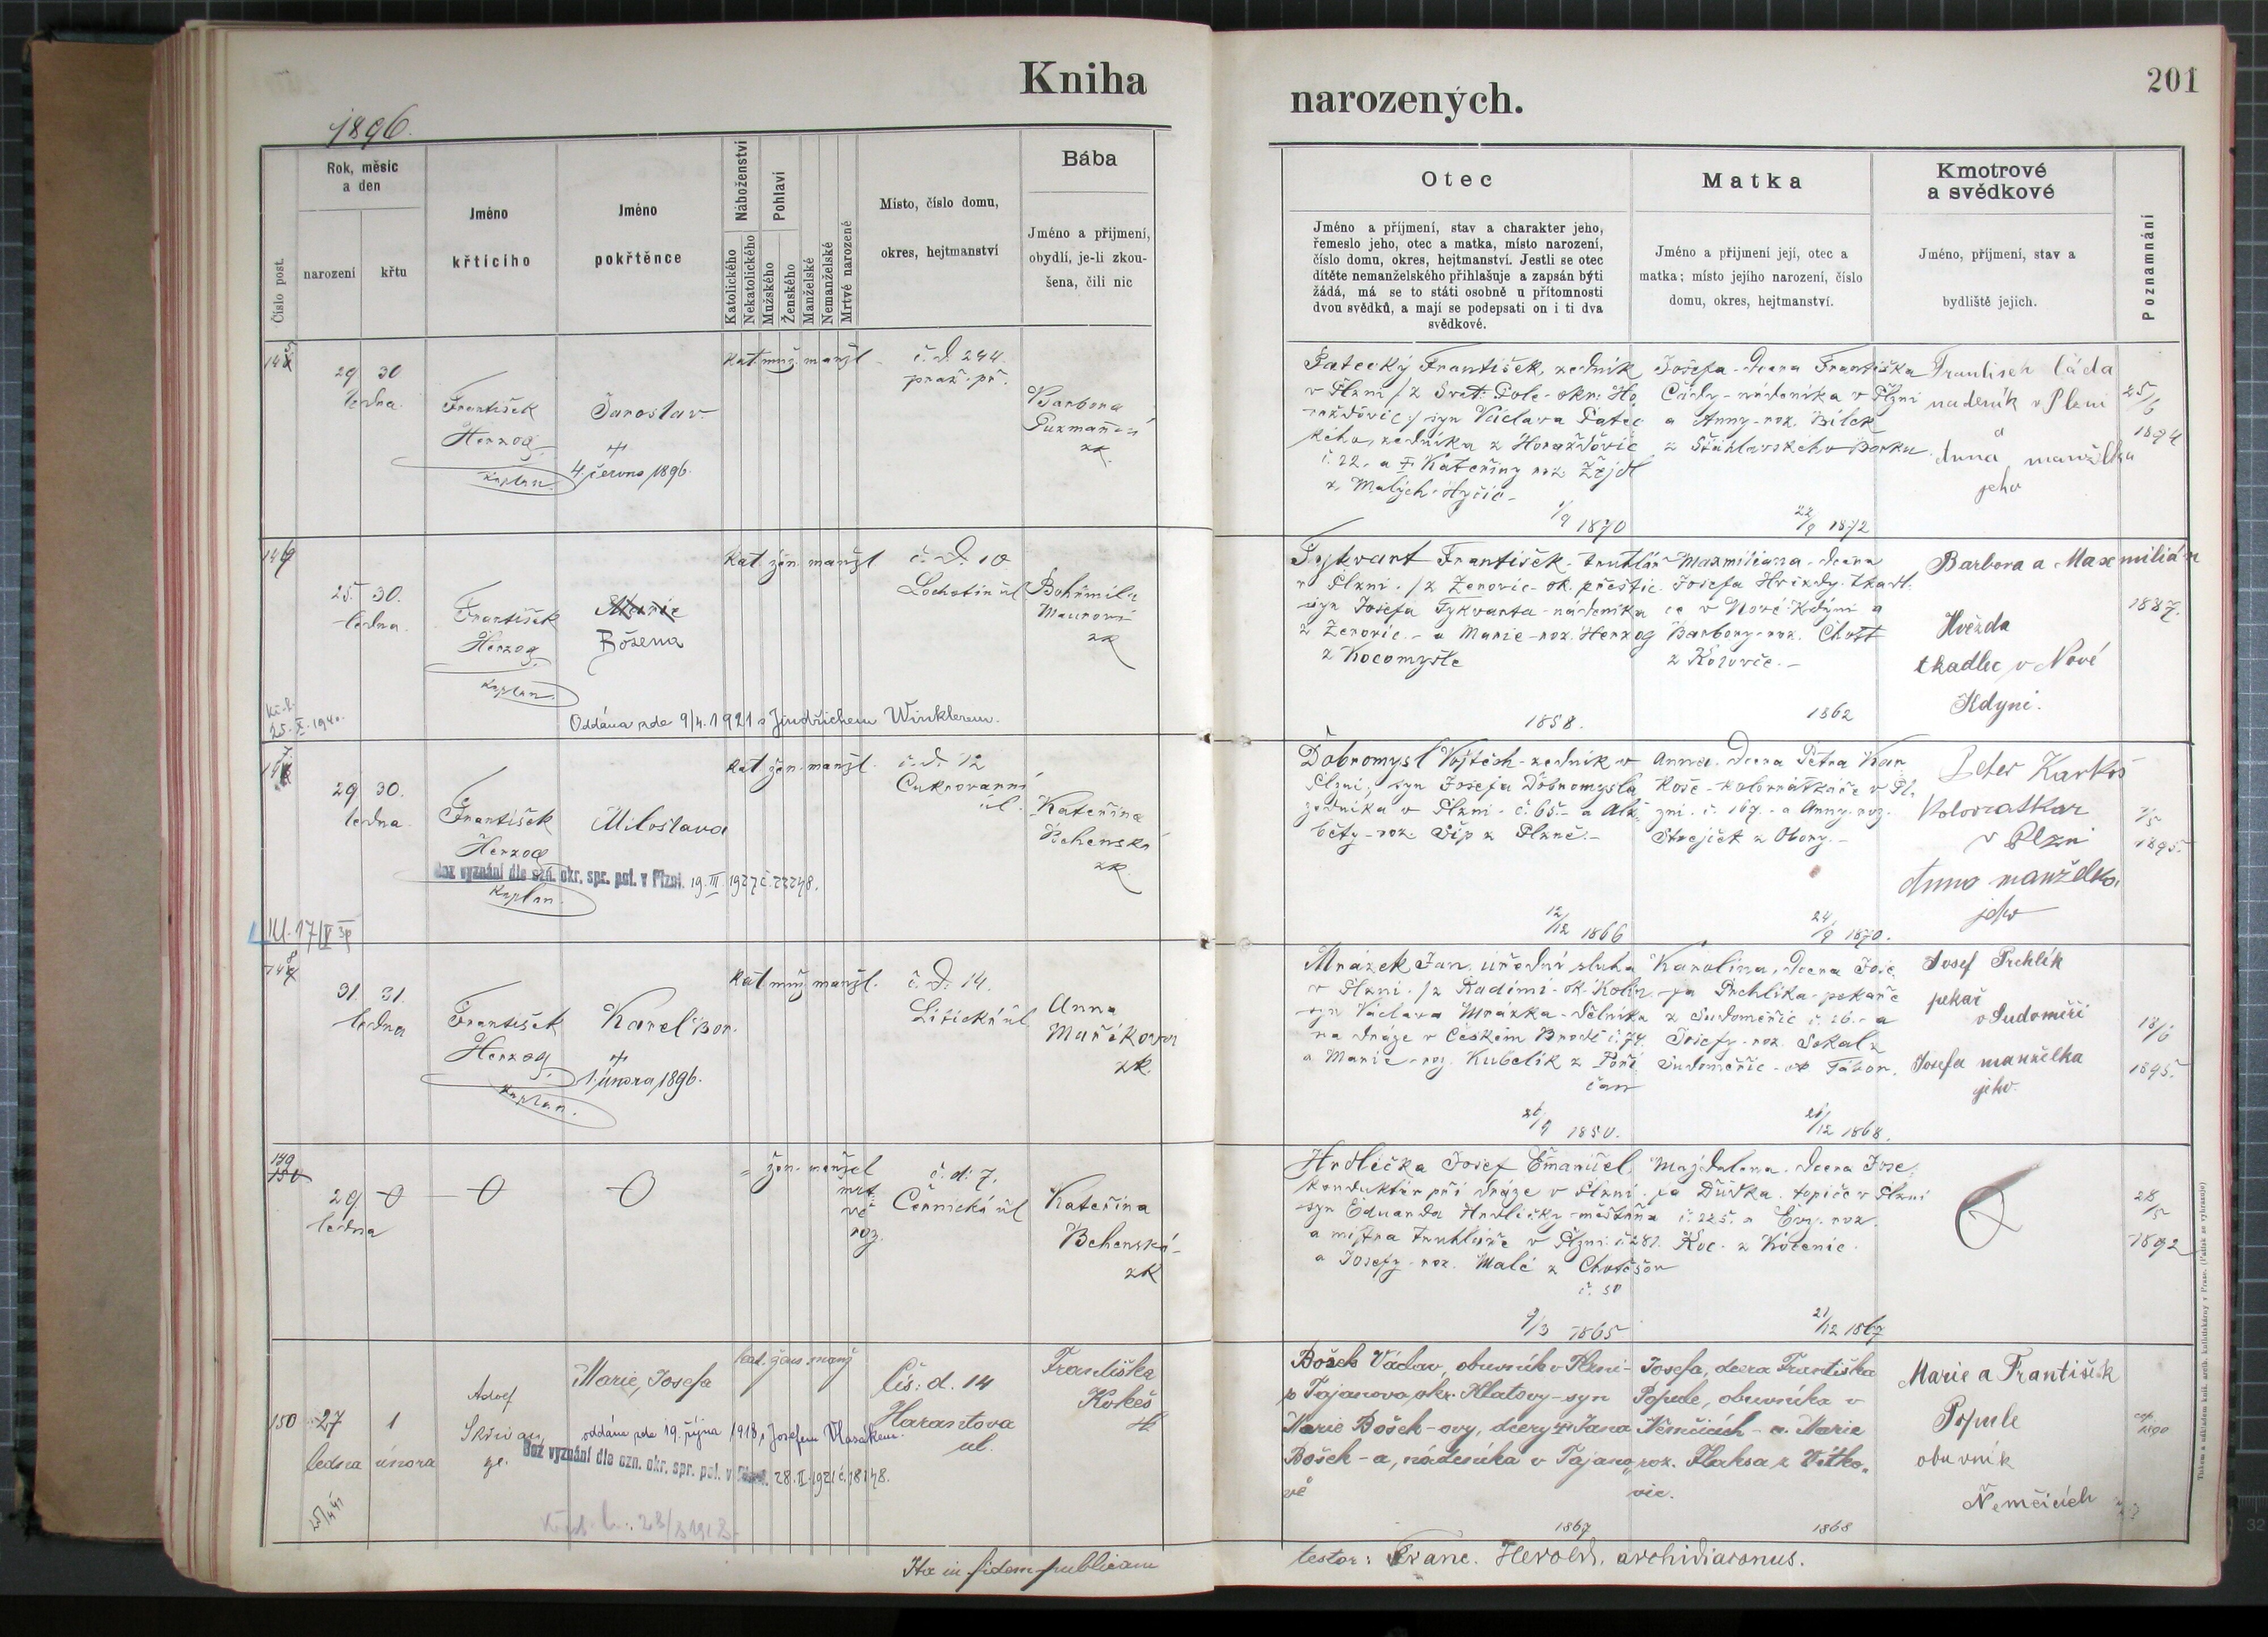 Kniha
1896.
Číslo post.
Rok, měsíc
a den
narození
křtu
Jméno
křtícího
Jméno
pokřtěnce
Náboženství
Katolického
Nekatolického
Pohlaví
Mužského
Ženského
Manželské
Nemanželské
Mrtvé narozené
Místo, číslo domu,
okres, hejtmanství
Bába
Jméno a příjmení,
obydlí, je-li zkou-
šena, čili nic
29 30
ledna
František
Herzog
kaplan.
Jaroslav.
4. června 1896.
kat. muž. manžl.
č. d. 244.
praž. př.
Barbora
zk.
146
25. 30.
ledna.
František
Herzog
kaplan.
Marie
Božena
Oddána zde 9/4. 1921 s Jindřichem Winklerem.
25. X. 1940.
kat. žen. manžl
č. d. 10
Lochotín. ul
Bohumila
Maurová
zk
29 30.
ledna
František
Herzog
kaplan.
Miloslava
Bez vyznání dle ozn. okr. spr. pol. v Plzni. 19. III. 1927 č. 22248.
kat. žen. manžl.
č. d. 12
Cukrovarní
ul.
Kateřina
Behenská
zk.
31. 31.
ledna
František
Herzog
kaplan.
Karel Bor.
1. února 1896.
kat. muž. manžl.
č. d. 14.
Litická ul
Anna
Maříková
zk.
149
150
29
ledna
žen. manžel
mrt
vě
roz.
č. d. 7.
Černická ul
Kateřina
Behenská
zk
150 27 1
ledna února
Adolf
Marie, Josefa
oddána zde 19. října 1918 s Josefem Vlasákem.
Bez vyznání dle ozn. okr. spr. pol. v Plzni. 28. II. 1921 č. 18148.
kat. žens. manž
čís. d. 14
Harantova
ul.
Františka
Kokeš
Ita in fidem publicam
narozených.
201
Otec
Jméno a příjmení, stav a charakter jeho,
řemeslo jeho, otec a matka, místo narození,
číslo domu, okres, hejtmanství. Jestli se otec
dítěte nemanželského přihlašuje a zapsán býti
žádá, má se to státi osobně u přítomnosti
dvou svědků, a mají se podepsati on i ti dva
svědkové.
Matka
Jméno a příjmení její, otec a
matka; místo jejího narození, číslo
domu, okres, hejtmanství.
Kmotrové
a svědkové
Jméno, příjmení, stav a
bydliště jejich.
Poznamnání
Patecký František, zedník
v Plzni /z Svat. Pole - okr. Ho
raždovic/ syn Václava Patec
kého, zedníka z Horažďovic
č. 22. a Kateřiny roz.
z Malých Hyčic -
1/9 1870
Josefa - dcera Františka
Lády - nádeníka v Plzni
a Anny - roz. Bílek
z Šťáhlavského Borku
22/9 1872
František Láda
nádeník v Plzni
a
Anna manželka
jeho
25/6
1894
Tykvart František - truhlář
v Plzni. /z Ženovic - ok. přeštic.
syn Josefa Tykvarta - nádeníka
z Ženovic. - a Marie - roz. Herzog
z Kocomyšle
1858.
Maxmiliana - dcera
Josefa Hvězdy - tkadl.
ce v Nové Kdyni a
Barbory - roz. Chott
z
1862
Barbora a Maxmilián
Hvězda
tkadlec v Nové
Kdyni.
1887.
Dobromysl Vojtěch - zedník v
Plzni, syn Josefa Dobromysla
zedníka v Plzni - č. 65. - a Alž.
běty - roz. Šíp z Plzně. -
12/12 1866
Anna - dcera Petra Kar
koše - kolovrátkáře v Pl.
zni. č. 167. - a Anny - roz.
Strejček z Obory. -
24/9 1870.
Peter Karkoš
Kolovratkar
v Plzni
Anna manželka
jeho
1895.
Mrázek Jan, úřední sluha
v Plzni. /z Radimi - ok. Kolín
syn Václava Mrázka - dělníka
na dráze v Českém Brodě č. 74.
a Marie - roz. Kubelík z Poří
čan
26/9 1850.
Karolina, dcera Jose
fa Prchlíka - pekaře
z Sudoměřic č. 26. - a
Josefy - roz. Sokal z
Sudoměřic - ok Tábor.
1868.
Josef Prchlík
pekař
v Sudoměři
Josefa manželka
jeho.
18/6
1895.
Hrdlička Josef Emanuel,
konduktér při dráze v Plzni.
syn Eduarda Hrdličky - měšťana
a mistra truhláře v Plzni č. 281.
a Josefy - roz. Malé z Chotěšov
č. 50
9/3 1865
Magdalena - dcera Jose.
fa Dudka - topiče v Plzni
č. 225. a Evy - roz.
Koc - z Kotenic.
21/12 1867
28/5
1892
Bošek Václav, obuvník v Plzni -
z Tajanova, okr. Klatovy - syn
Marie Bošek - ovy, dcery Jana
Bošek - a, nádeníka v Tajano„
vě
1867
Josefa, dcera Františka
Popule, obuvníka v
Němčicích - a Marie
roz. Flaksa z Vítko„
vic.
1868
Marie a František
Popule
obuvník
Němčicích
testor: Franc. Herold, archidiaconus.